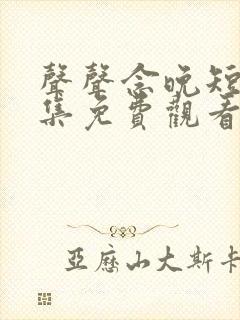 聲聲念晚短
集免費觀看
亞歷山大斯卡